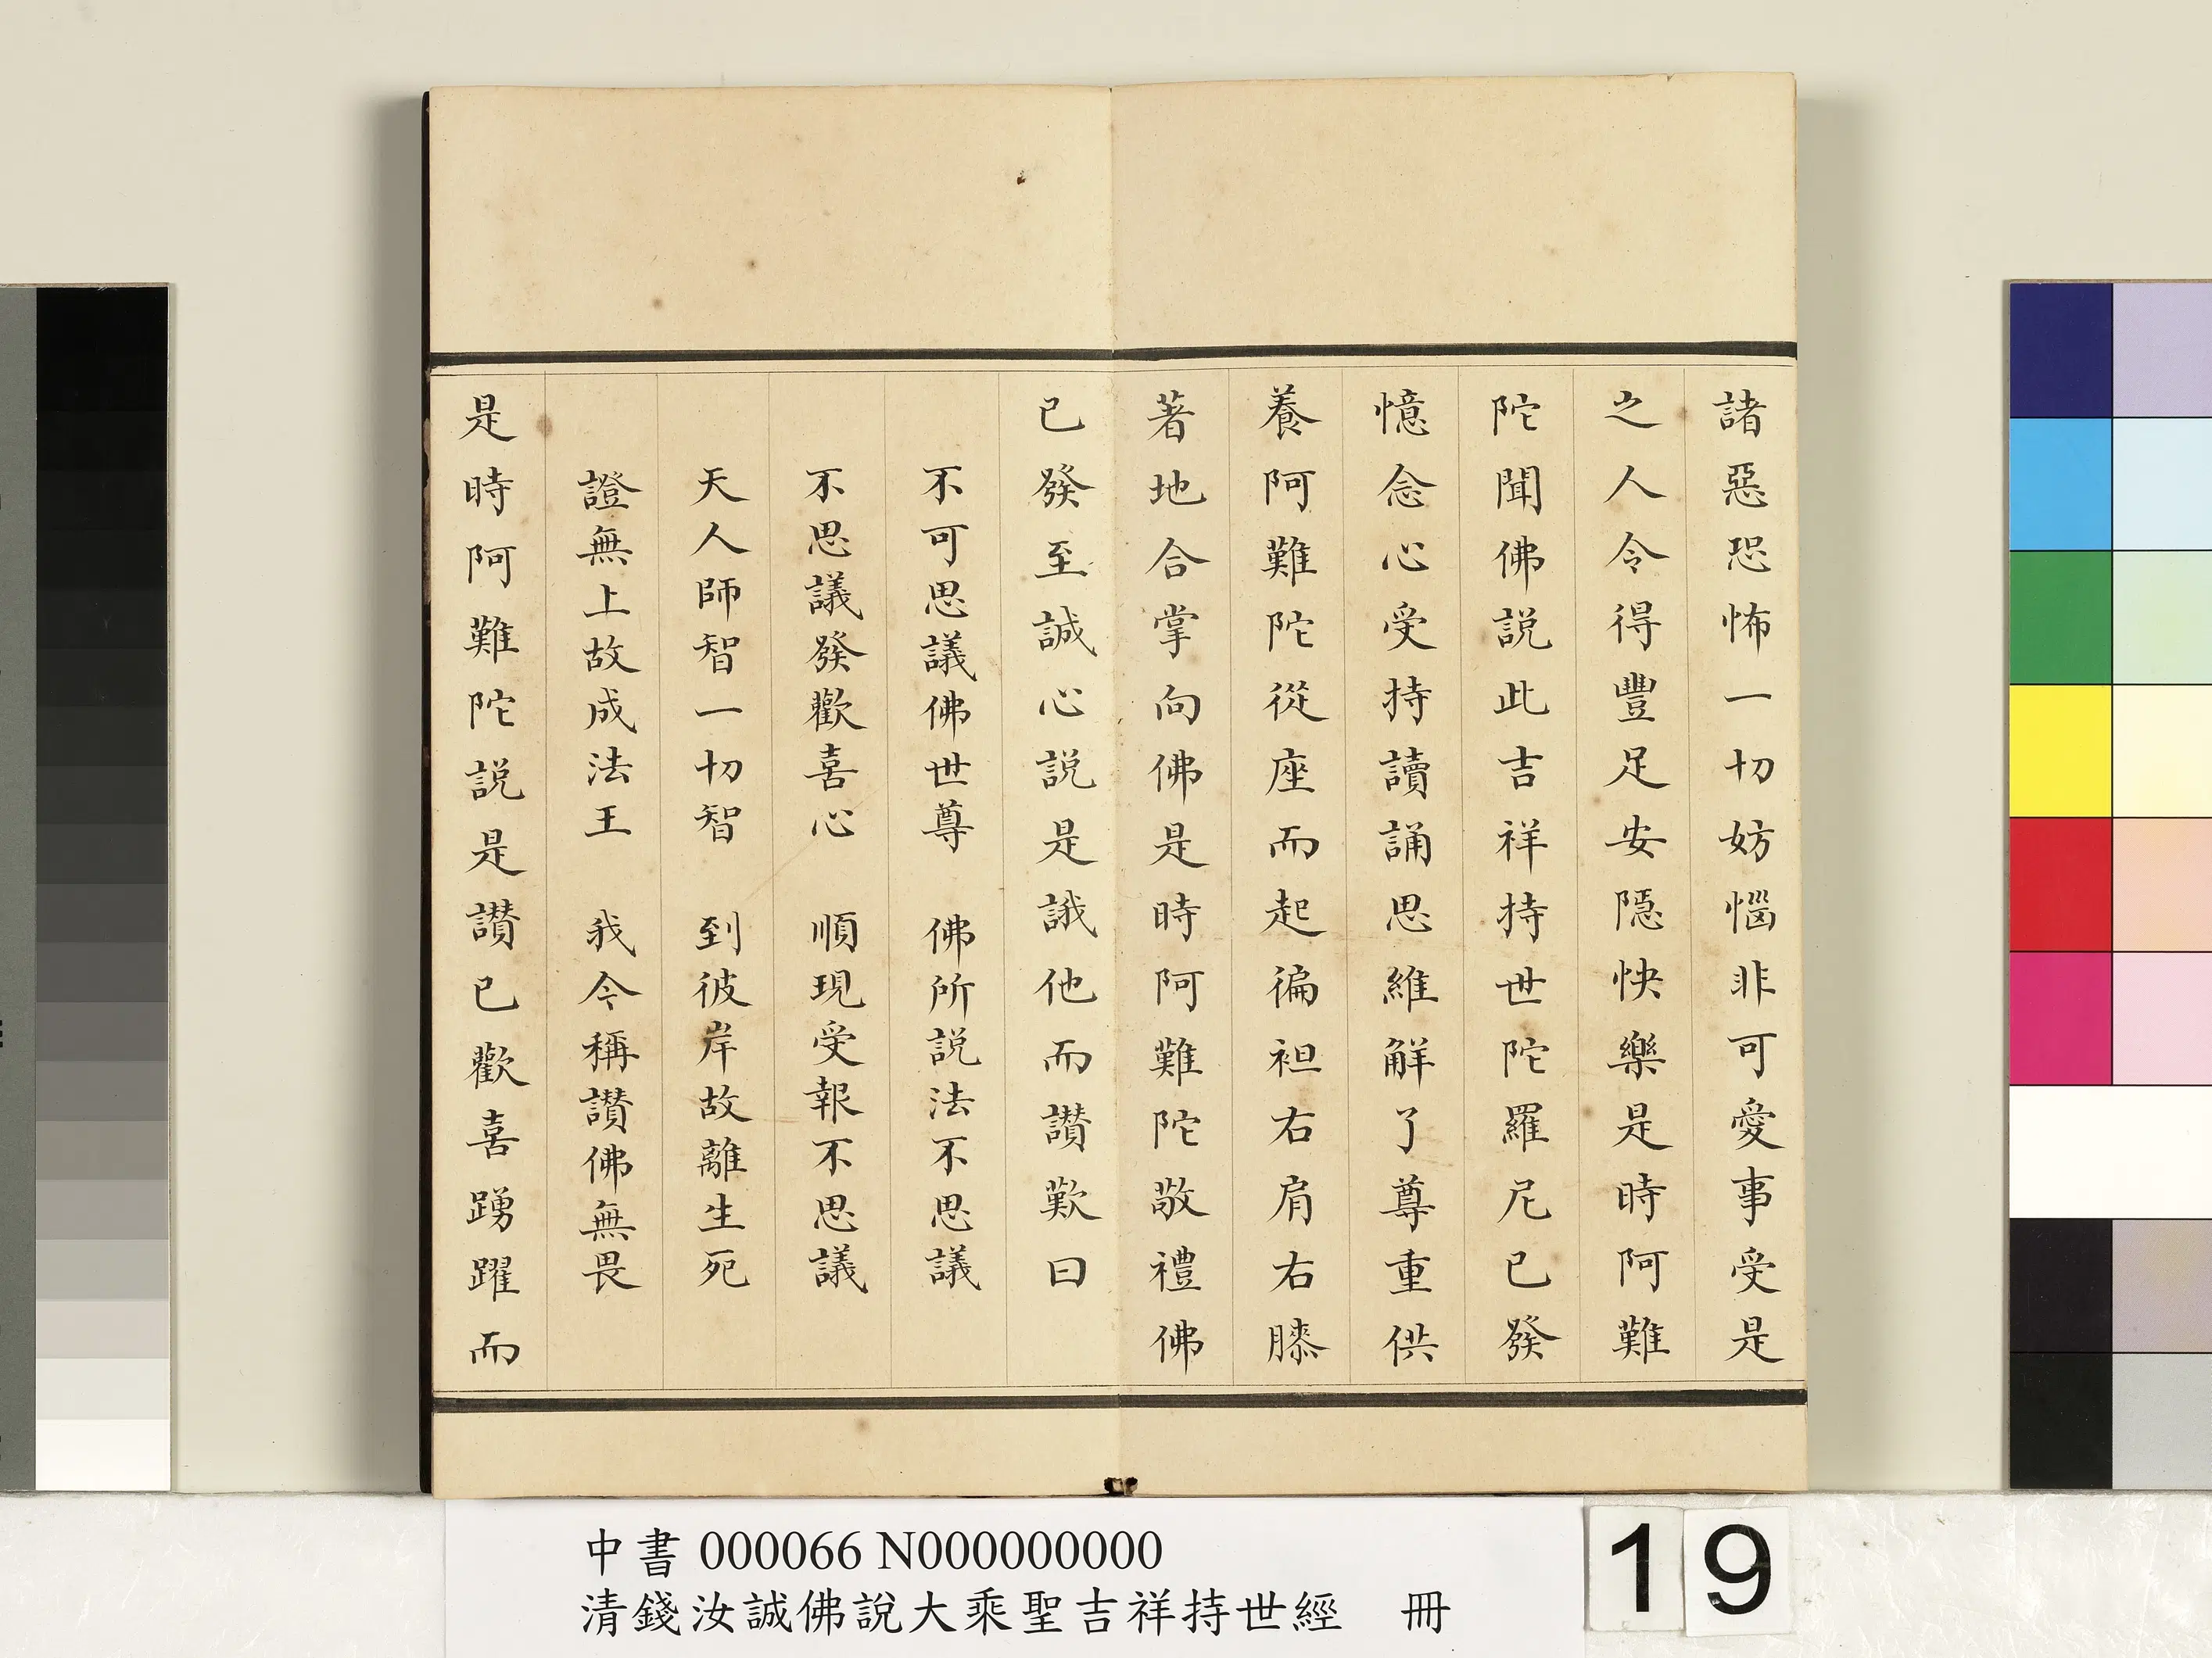 諸惡恐怖一切妨惱非可愛事受是
之人令得豐足安隱快樂是時阿難
陀聞佛説此吉祥持世陀羅尼已發
憶念心受持讀誦思維解了尊重供
養阿難陀從座而起徧袒右肩右膝
著地合掌向佛是時阿難陀敬禮佛
已發至誠心説是誐他而讚歎曰
不可思議佛世尊　佛所説法不思議
不思議發歡喜心　順現受報不思議
天人師智一切智　到彼岸故離生死
證無上故成法王　我今稱讚佛無畏
是時阿難陀説是讚已歡喜踴躍而
中書 000066 N000000000
清錢汝誠佛說大乘聖吉祥持世經　冊
19